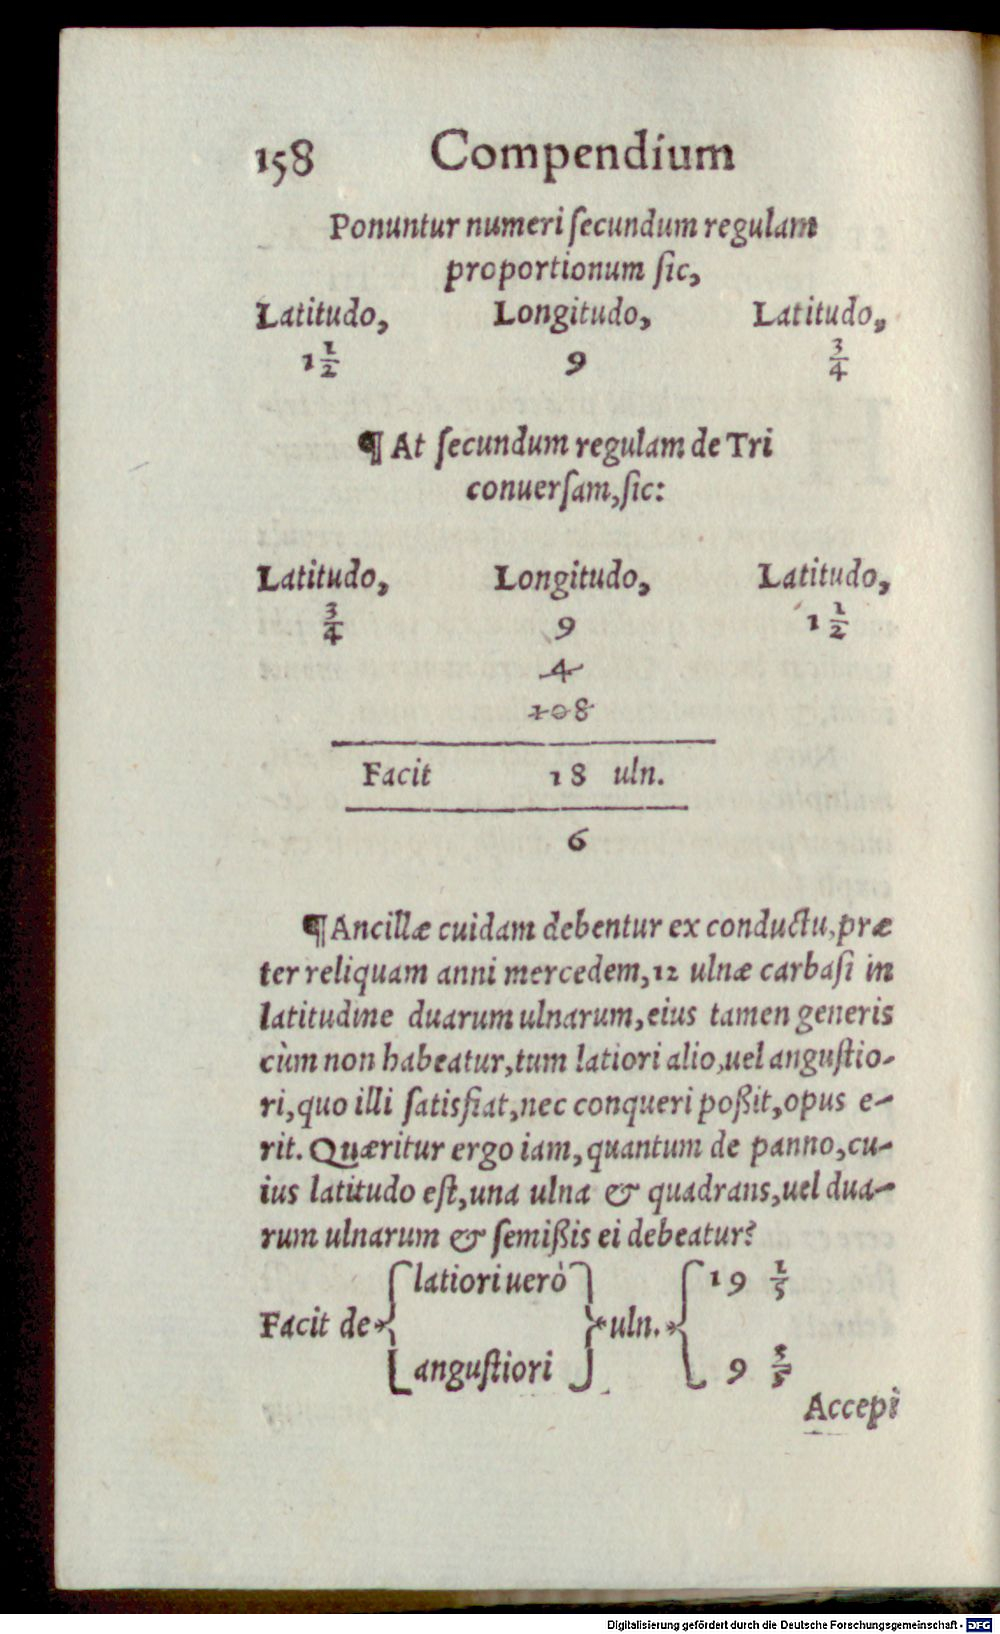 158 Compendium
Ponuntur numeri ſecundum regulam
proportionum ſic,
Latitudo, Longitudo, Latitudo,
1 1/2 9 3/4
¶ At ſecundum regulam de Tri
conuerſam, ſic:
Latitudo, Longitudo, Latitudo,
3/4 9 1 1/2
4
108
Facit 18 uln.
6
¶ Ancillæ cuidam debentur ex conductu, præ
ter reliquam anni mercedem, 12 ulnæ carbaſi in
latitudine duarum ulnarum, eius tamen generis
cùm non habeatur, tum latiori alio, uel anguſtio-
ri, quo illi ſatisfiat, nec conqueri poßit, opus e-
rit. Quæritur ergo iam, quantum de panno, cu-
ius latitudo eſt, una ulna & quadrans, uel dua-
rum ulnarum & ſemißis ei debeatur?
latiori uerò 19 1/5
Facit de uln.
anguſtiori 9 3/5
Accepi
Digitalisierung gefördert durch die Deutsche Forschungsgemeinschaft - DFG